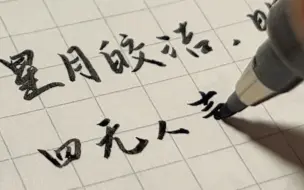 星月皎洁，
四无人